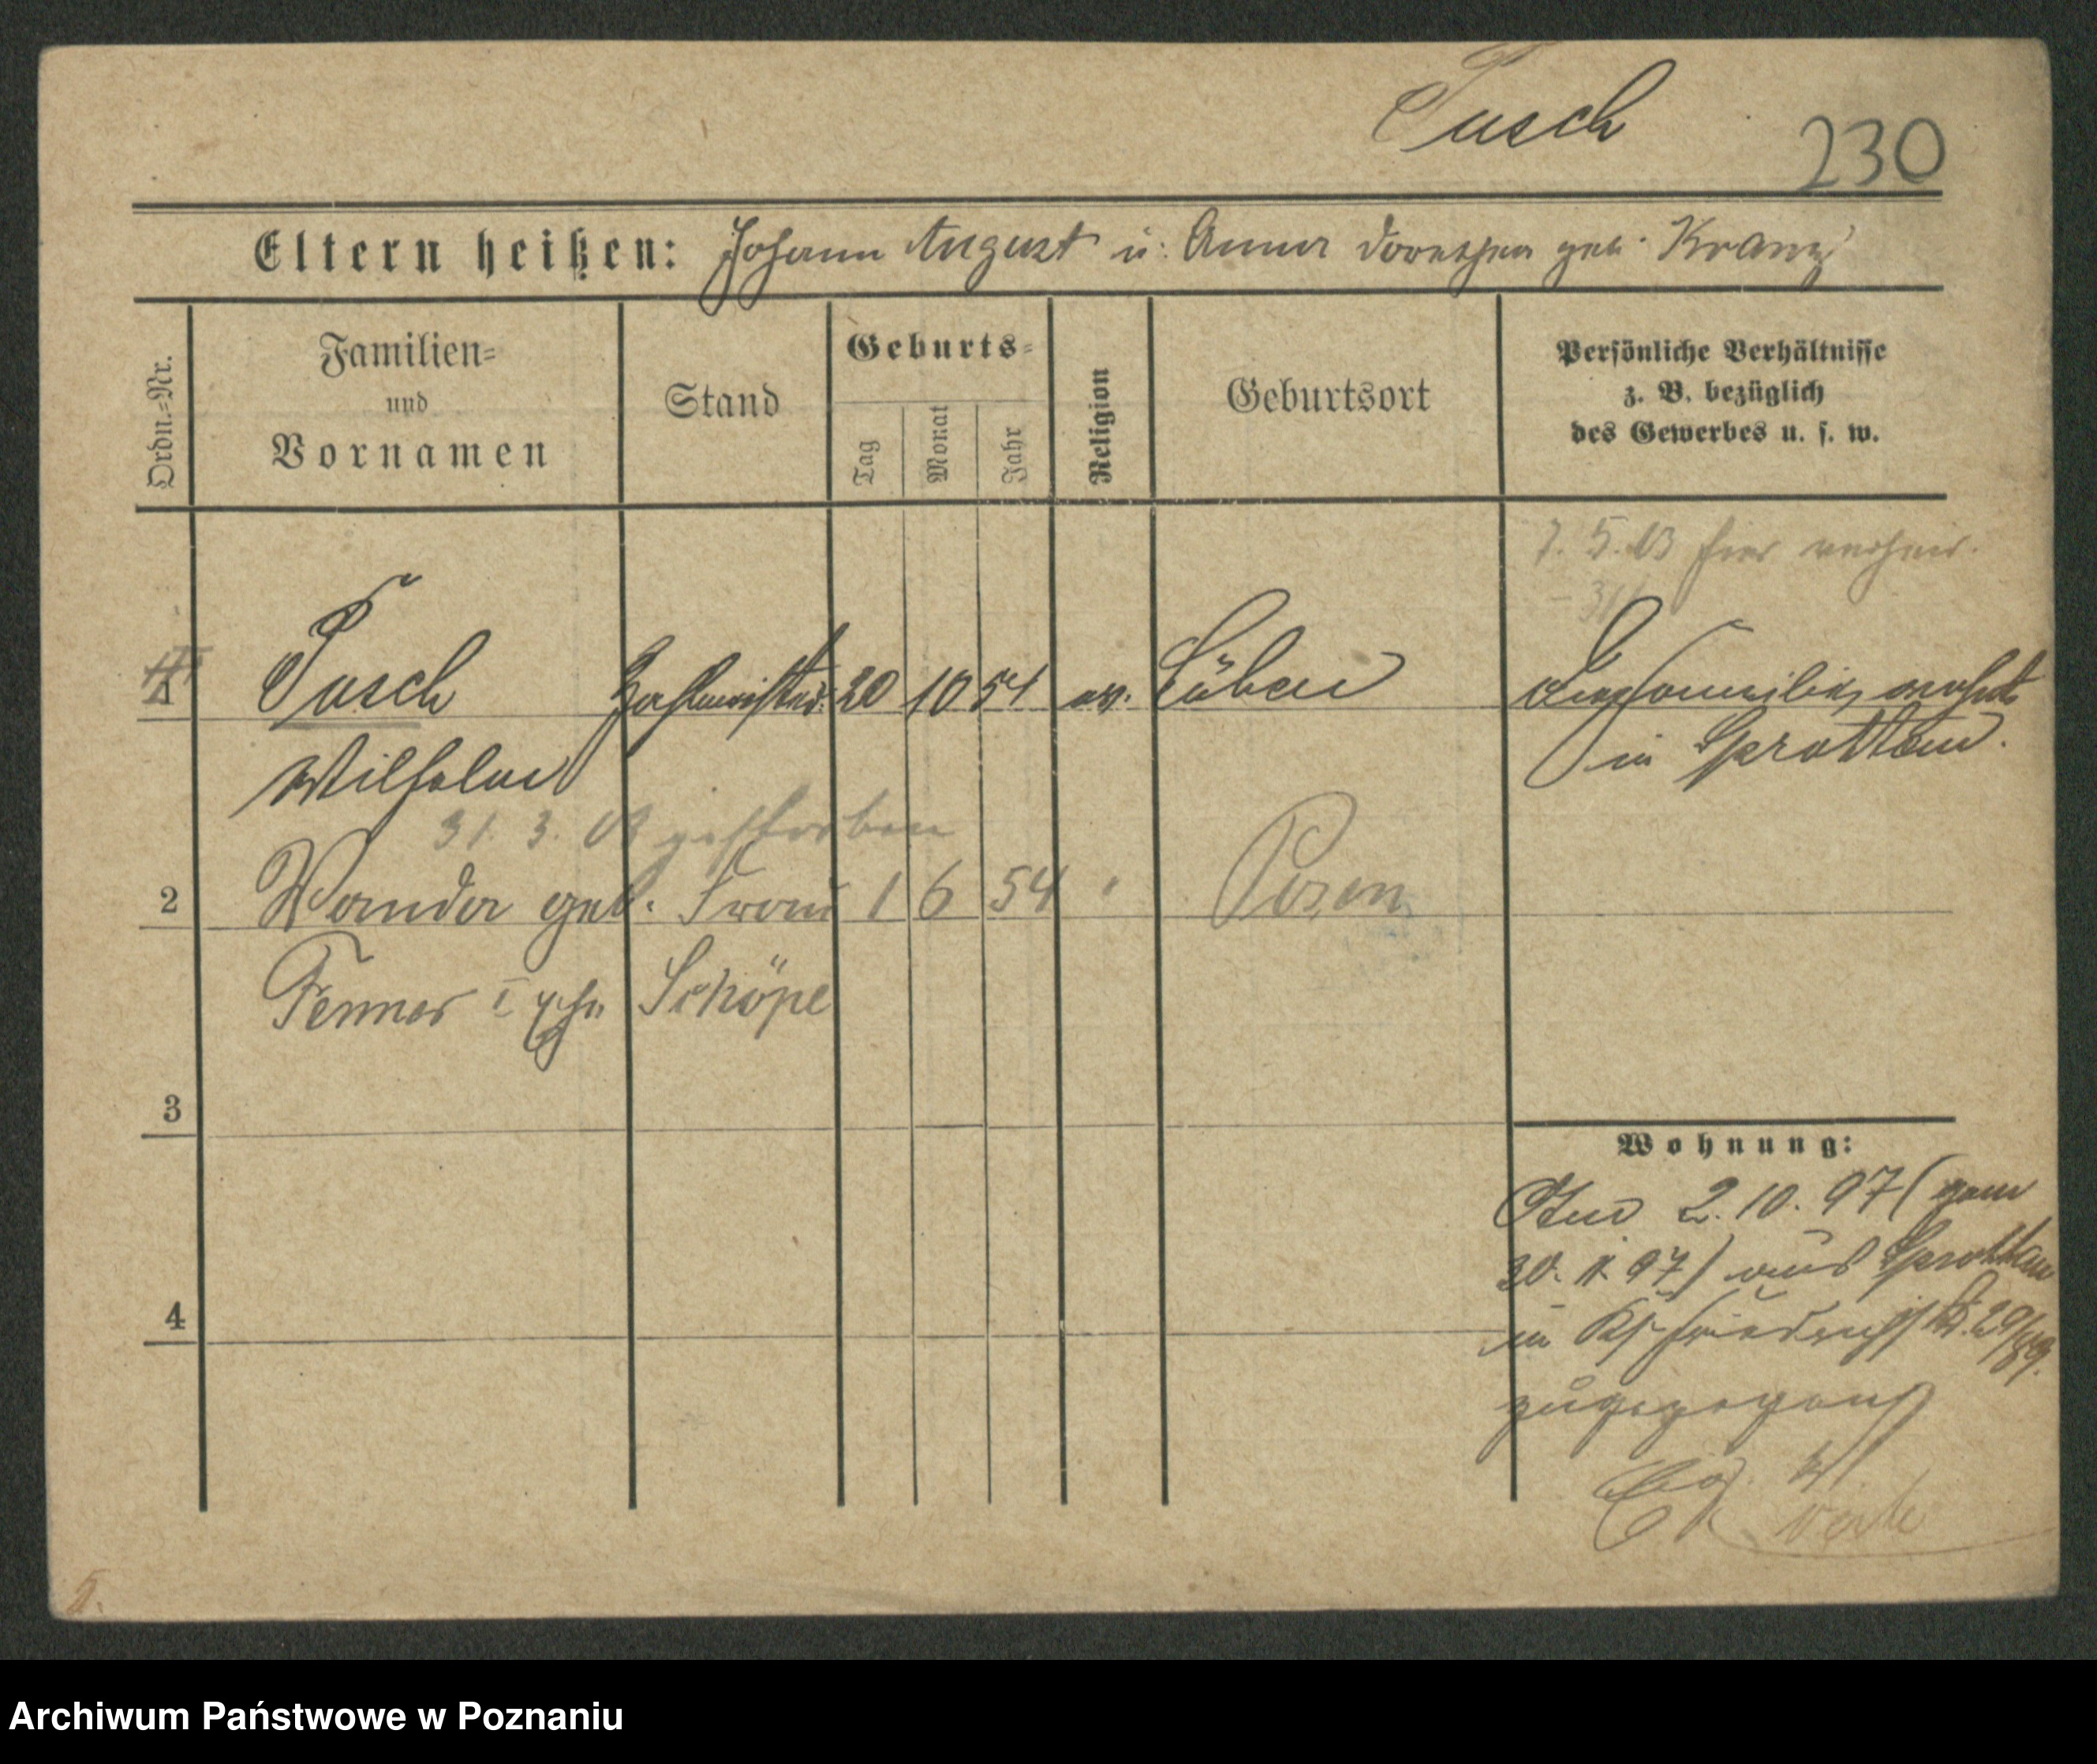 Tusch
230
Eltern heißen: Johann August u: Anna Dorothea geb. Kranz
Ordn.=Nr.
Familien=
und
Vornamen
Stand
Geburts=
Tag
Monat
Jahr
Religion
Geburtsort
Persönliche Verhältnisse
z. B. bezüglich
des Gewerbes u. s. w.
7. 5. 03 hier verheir.
1 Tusch Zahlmeister 20 10 54 ev. Lüben
Wilhelm
Die Familie wohnt
in Sprottau.
31. 3. 03 gestorben
2 Wanda geb. 1 6 54 " Posen
Fenner I Ehe Schöpe
3
4
Wohnung:
2. 10. 97 (vom
30. 11. 97) aus Sprottau
in
5.
Archiwum Państwowe w Poznaniu